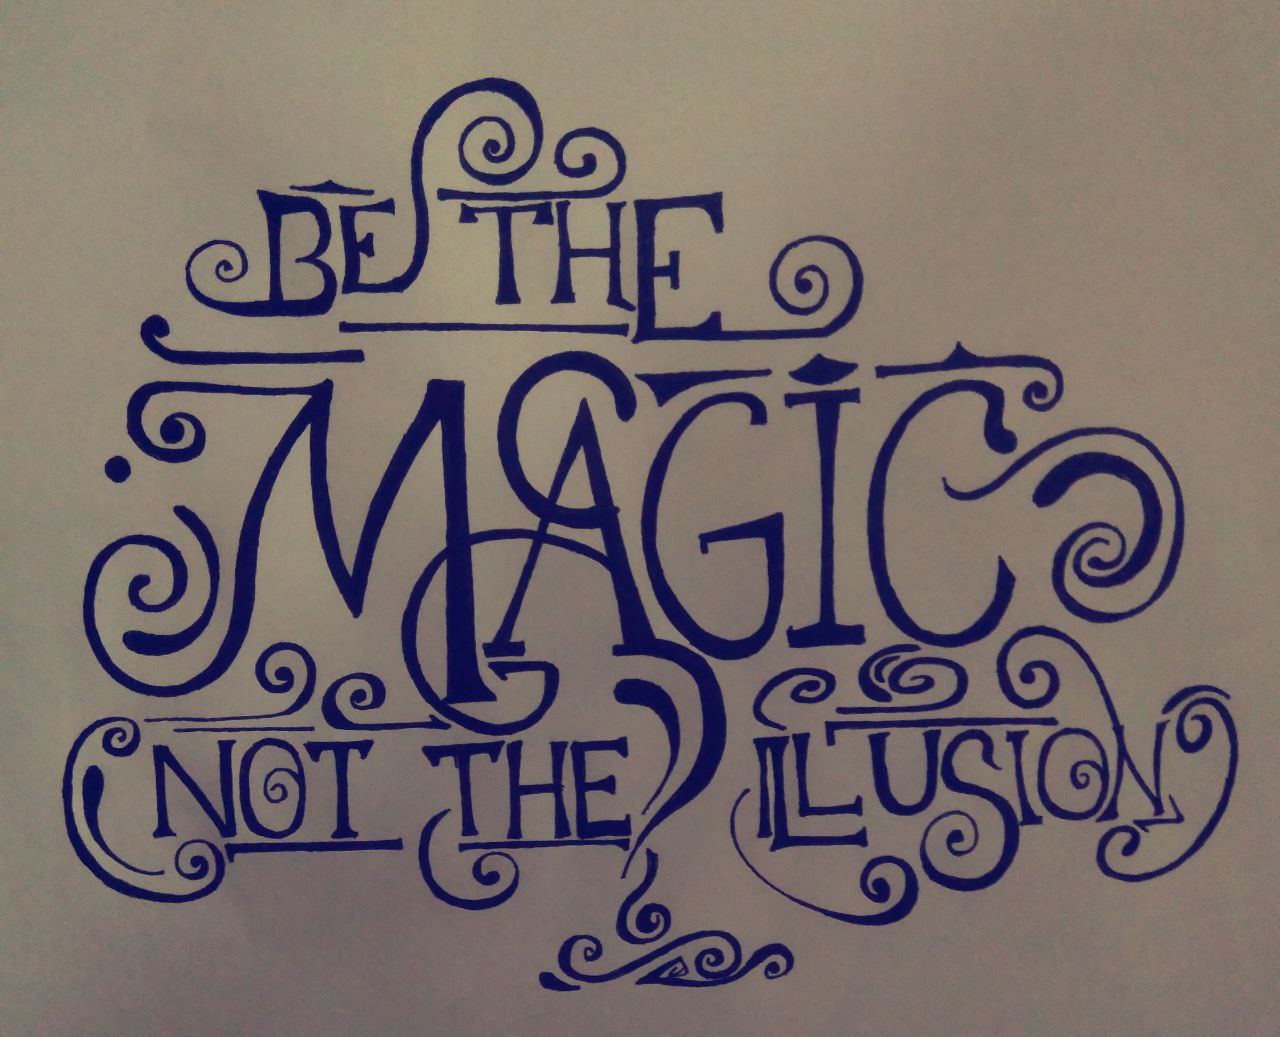 BE THE
MAGIC
NOT THE ILLUSION